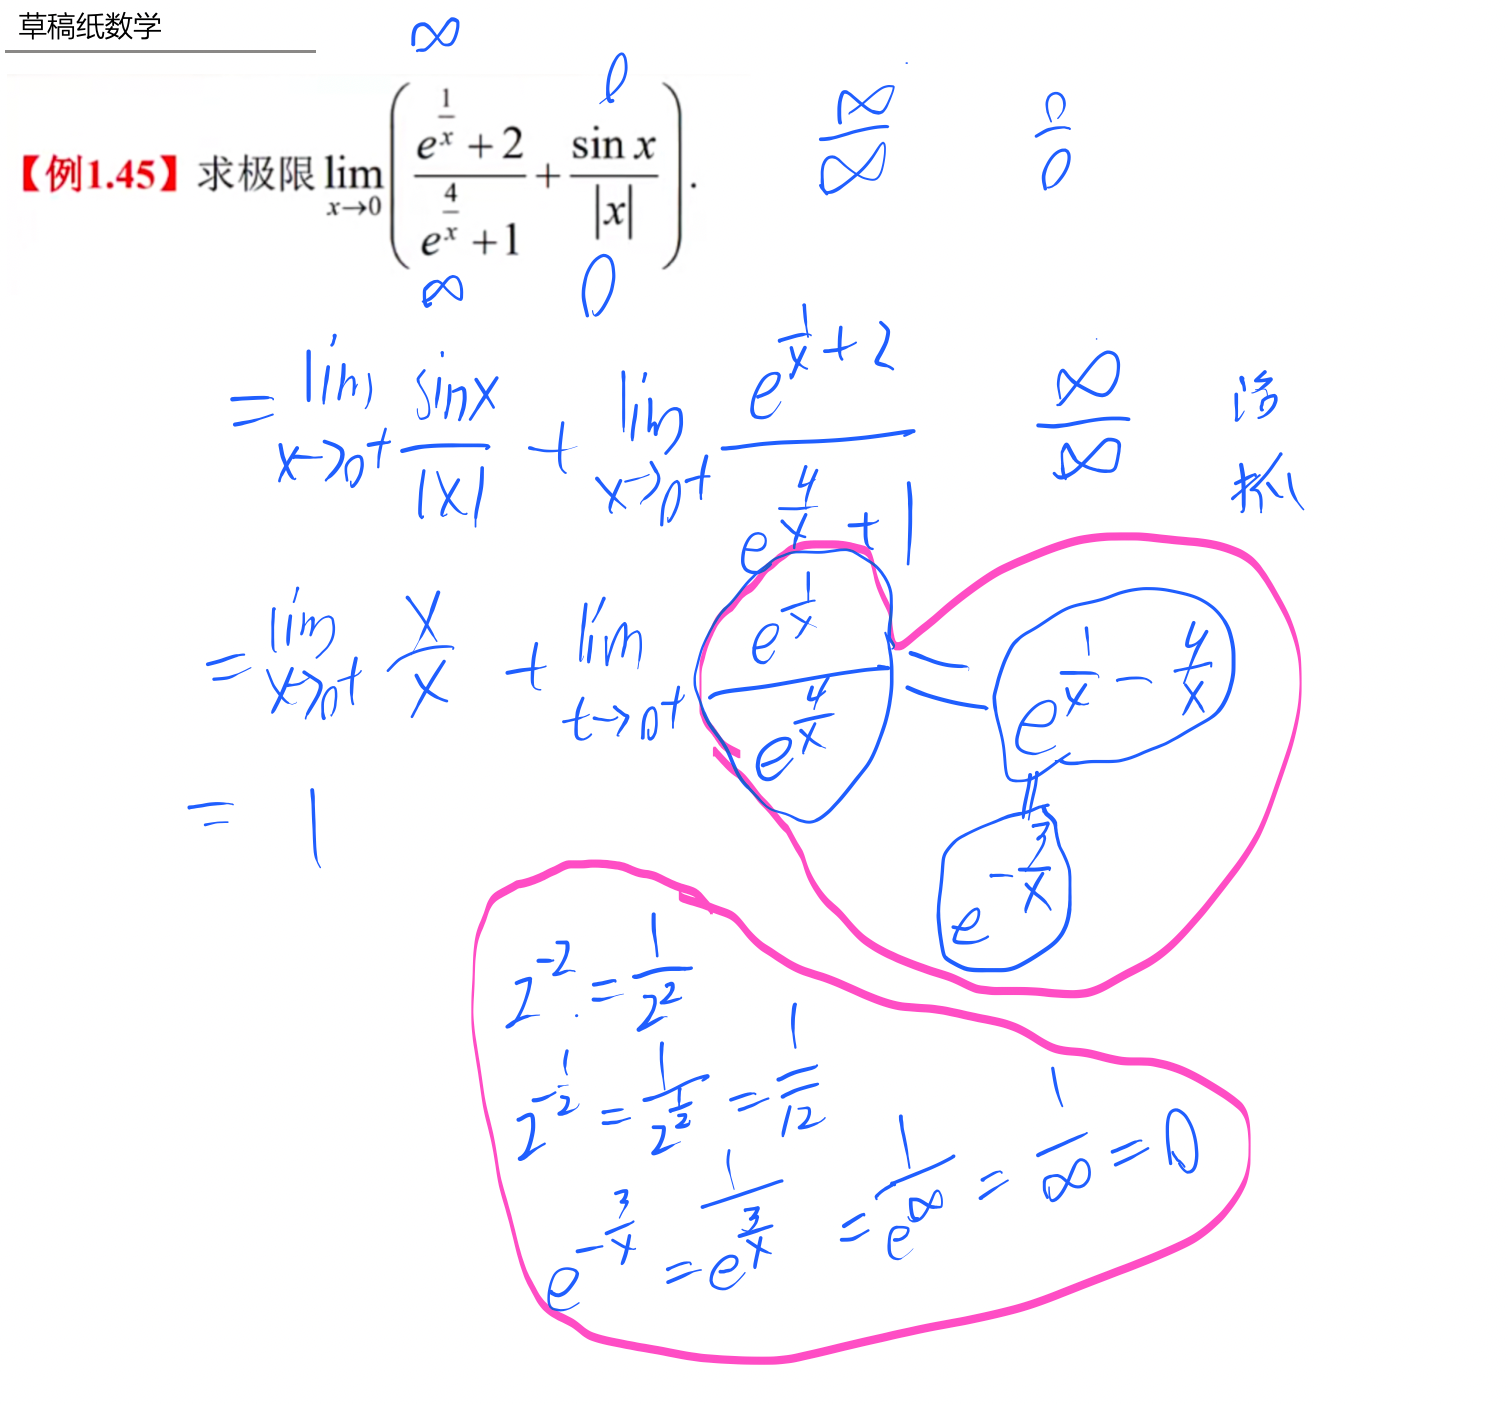 草稿纸数学
∞ 0
【例1.45】求极限 lim x→0 ( (e^{1/x} + 2)/(e^{4/x} + 1) + sin x/|x| ). ∞/∞ 0/0
∞ 0
= lim x→0+ sinx/|x| + lim x→0+ (e^{1/x} + 2)/(e^{4/x} + 1) ∞/∞ 洛
抓
= lim x→0+ x/x + lim t→0+ e^{1/x}/e^{4/x} = e^{1/x - 4/x}
= 1
= e^{-3/x}
2^{-2} = 1/2^2
2^{-1/2} = 1/2^{1/2} = 1/√2
e^{-3/x} = 1/e^{3/x} = 1/e^∞ = 1/∞ = 0